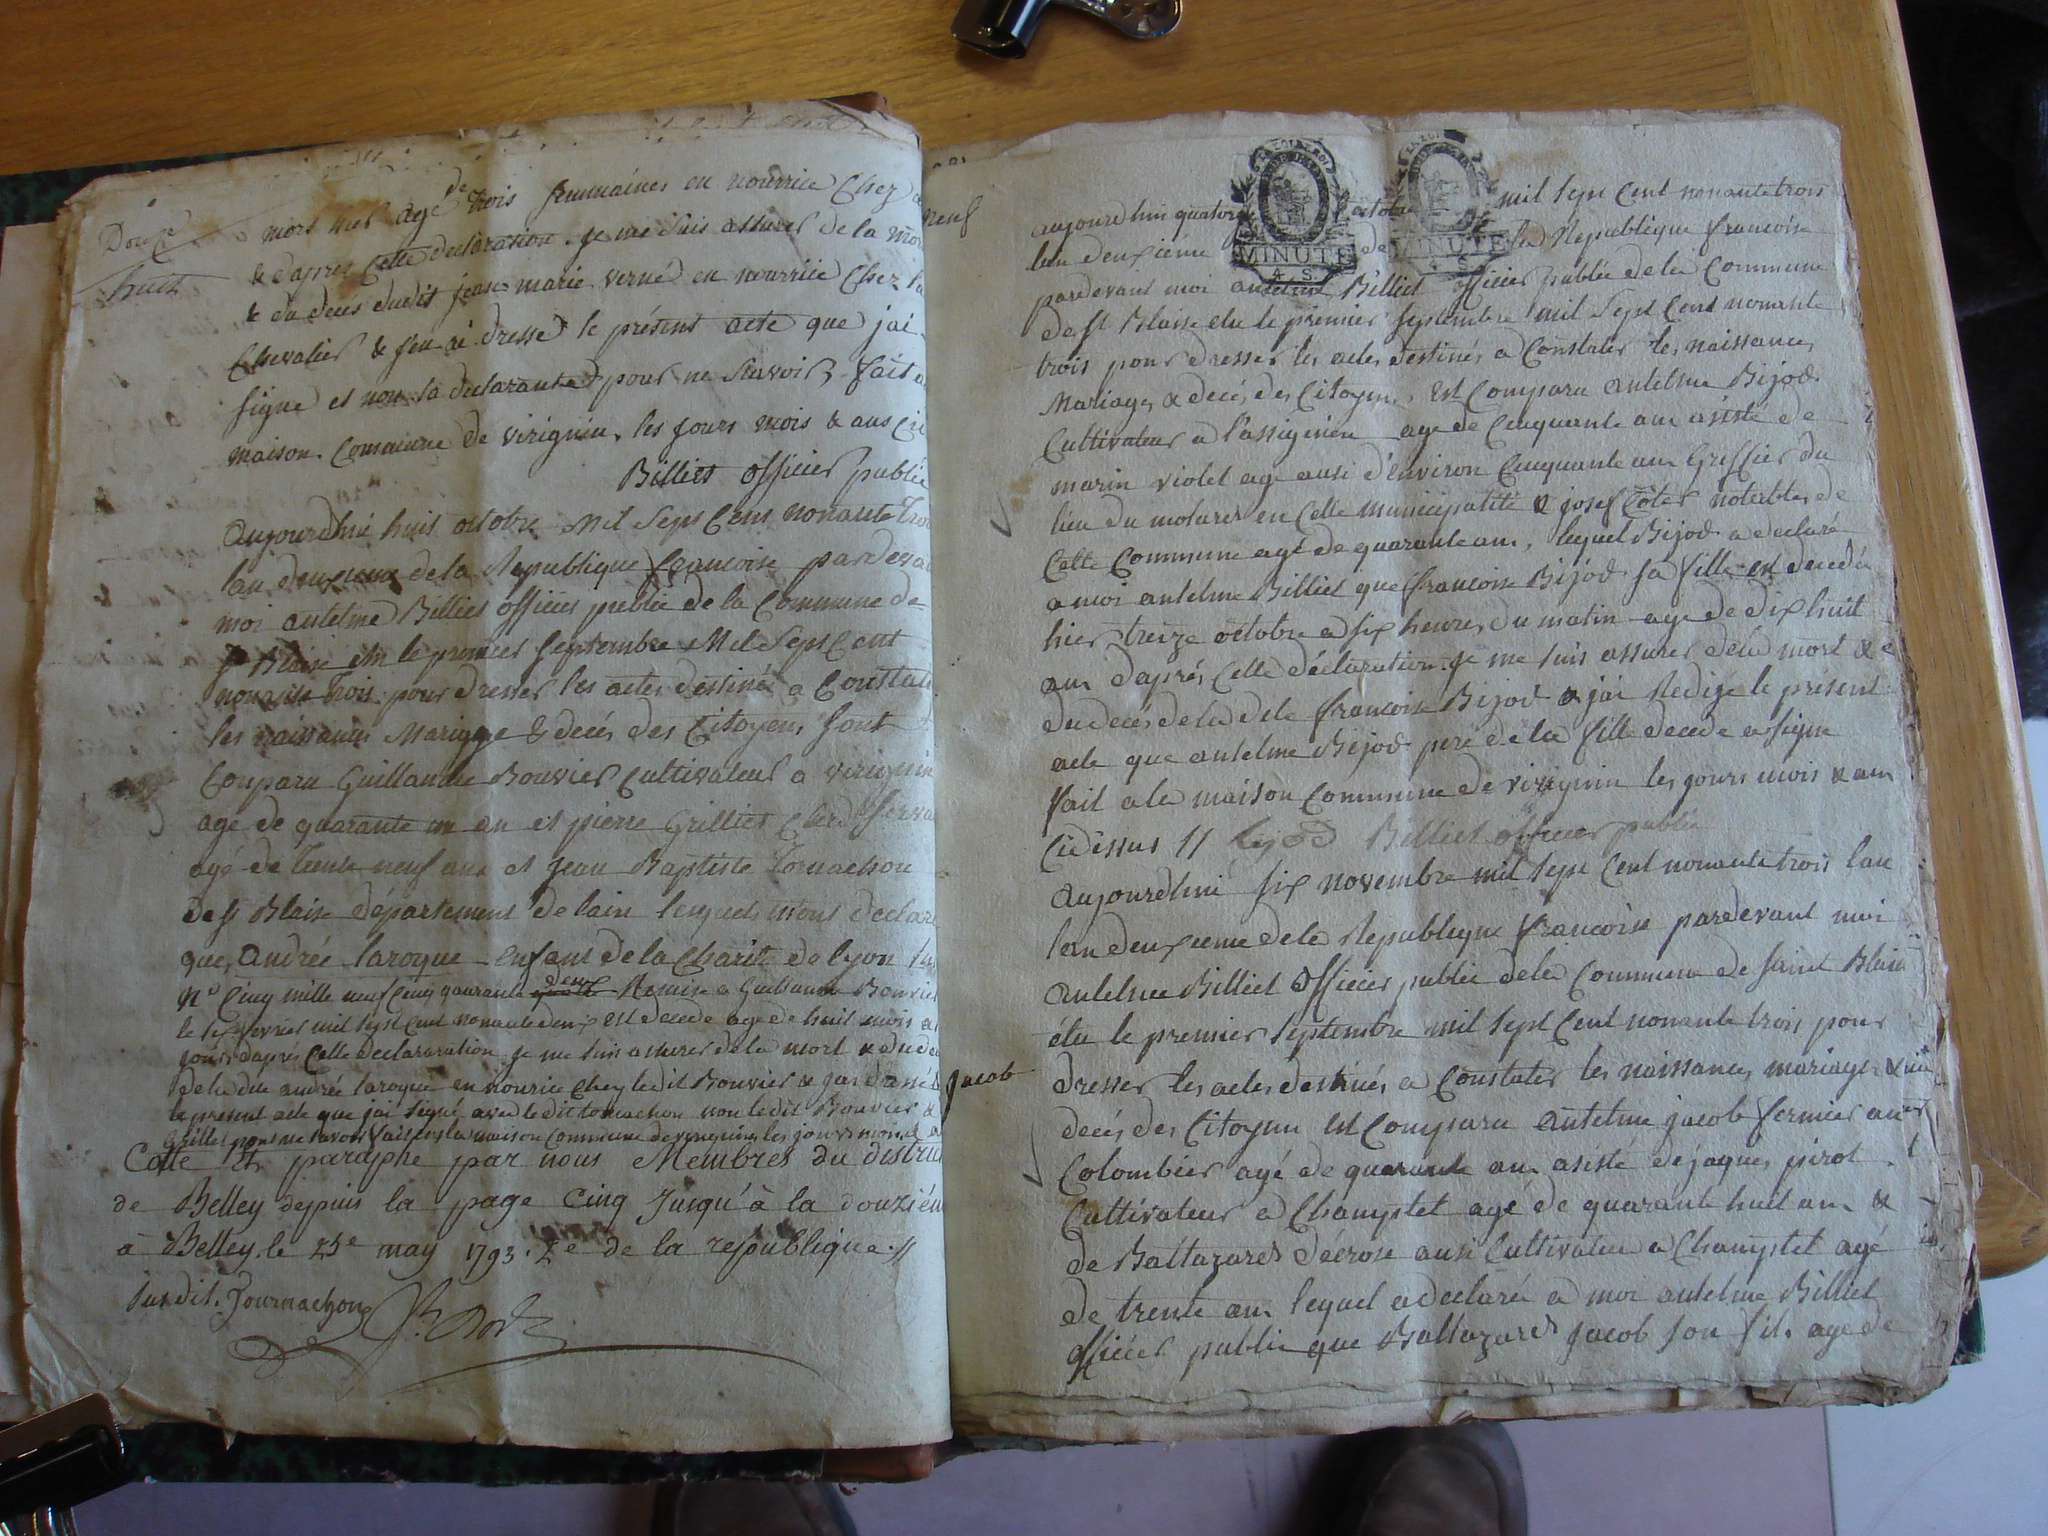 Douze
huit
mort hier age de trois semmaines en nourrice Chez
& dapres Cette declaration je me suis assurer de la mor
& du deces dudit jean marie verné en nourrice Chez la
Chevalier & jen ai dressé le présent acte que jai
signe et non la declarante pour ne Savoir fait a
maison Commune de virignin les jours mois & ans
Billiet officier publie
aujourdhui huit octobre mil Sept Cent nonante troi
lan deuxieme de la Republique francoise pardeva
moi antelme Billiet officier publie de la Commune de
st Blaise elu le premier Septembre Mil Sept Cent
nonante trois pour dresser les actes destinés a Constate
les naissances Mariage & decés des Citoyens sont
Comparu Guillaume Bouvier Cultivateur a virignin
agé de quarante un an et pierre Grilliet
agé de trente neuf ans et jean Baptiste Tournachon
de st Blaise département de lain lesquels mont declaré
que andrée laroque enfant de la Charité de lyon
no Cinq mille neuf Cinq quarante deux Remise a Guillaume Bouvier
le fevrier mil sept Cent nonante deux est decede age de huit mois
jours daprés Cette declararation je me suis assurer de la mort & du de
de la dite andrée laroque en nourice Chez ledit Bouvier & jai dressé
le present acte que jai signé avec le dit tournachon non ledit Bouvier &
Grilliet pour ne savoir fait en la maison Commune de virignin les jours mois &
Cotte et paraphe par nous Membres du distric
de Belley depuis la page Cinq Jusqu'à la douzièm
à Belley le 23e may 1793. 2e de la republique //
susdit. Tournachon
neuf
MINUTE
4. S.
MINUTE
4 S
aujourdhui quatorze octobre mil sept Cent nonante trois
lan deuxieme de la Republique francoise
pardevant moi antelme Billiet officier publie de la Commune
de st Blaise elu le premier septembre mil Sept Cent nonante
trois pour dresser les actes destinés a Constater les naissances
Mariages & decés des Citoyens, est Comparu antelme Bijod
Cultivateur a l'assignieu age de Cinquante ans assisté de
marin violet age ausi d'environ Cinquante ans Greffier du
lieu du motaret en Cette municipalité & josef Côter notable de
Cette Commune agé de quarante ans, lequel Bijod a declaré
a moi antelme Billiet que francoise Bijod sa fille est decedé
hier treize octobre a six heures du matin age de dix huit
ans daprés Cette déclaration je me suis assurer de la mort &
du decés de la dite francoise Bijod & jai Redige le présent
acte que antelme Bijod pere de la fille decede a signe
fait a la maison Commune de virignin les jours mois & ans
Cidessus // Bijod Billiet officier publie
aujourdhui six novembre mil sept Cent nonante trois lan
lan deuxieme de la Republique francoise pardevant moi
antelme Billiet officier publie de la Commune de saint Blaise
élu le premier septembre mil sept Cent nonante trois pour
Jacob
dresser les actes destinés a Constater les naissances mariages &
decés des Citoyens est Comparu antelme jacob fermier au
Colombier agé de quarante ans asisté de jaques pirot
Cultivateur a Champtet agé de quarante huit ans &
de Baltazard décrose ausi Cultivateur a Champtet agé
de trente ans lequel a declaré a moi antelme Billiet
officier publie que Baltazard jacob son fils age de